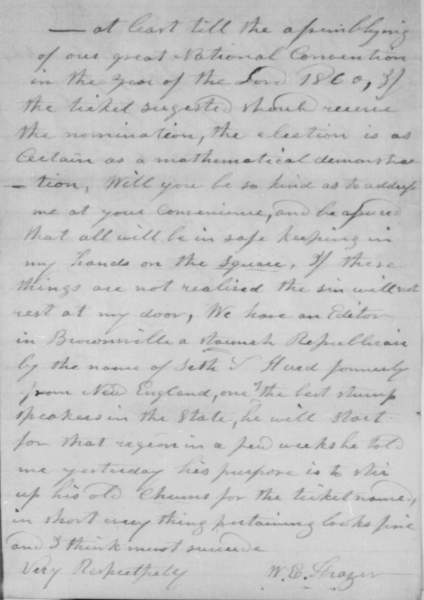 — at least till the assemblying
of our great National Convention
in the year of the Lord 1860, If
the ticket sugested should receive
the nomination, the election is as
Certain as a mathematical demonstra
– tion, Will you be so kind as to address
me at your Convenience, and be assured
that all will be in safe keeping in
my hands on the square, If these
things are not realised the sin will not
rest at my door, We have an Editor
in Brownville a staunch Republican
by the name of Seth formerly
from New England, one of the best stump
speakers in the State, he will start
for that region in a few weeks he told
me yesterday his purpose is to stir
up his old Chums for the ticket named,
in short every thing pertaining looks fine
and I think must succeede
Very Respectfully W. E. Frazer